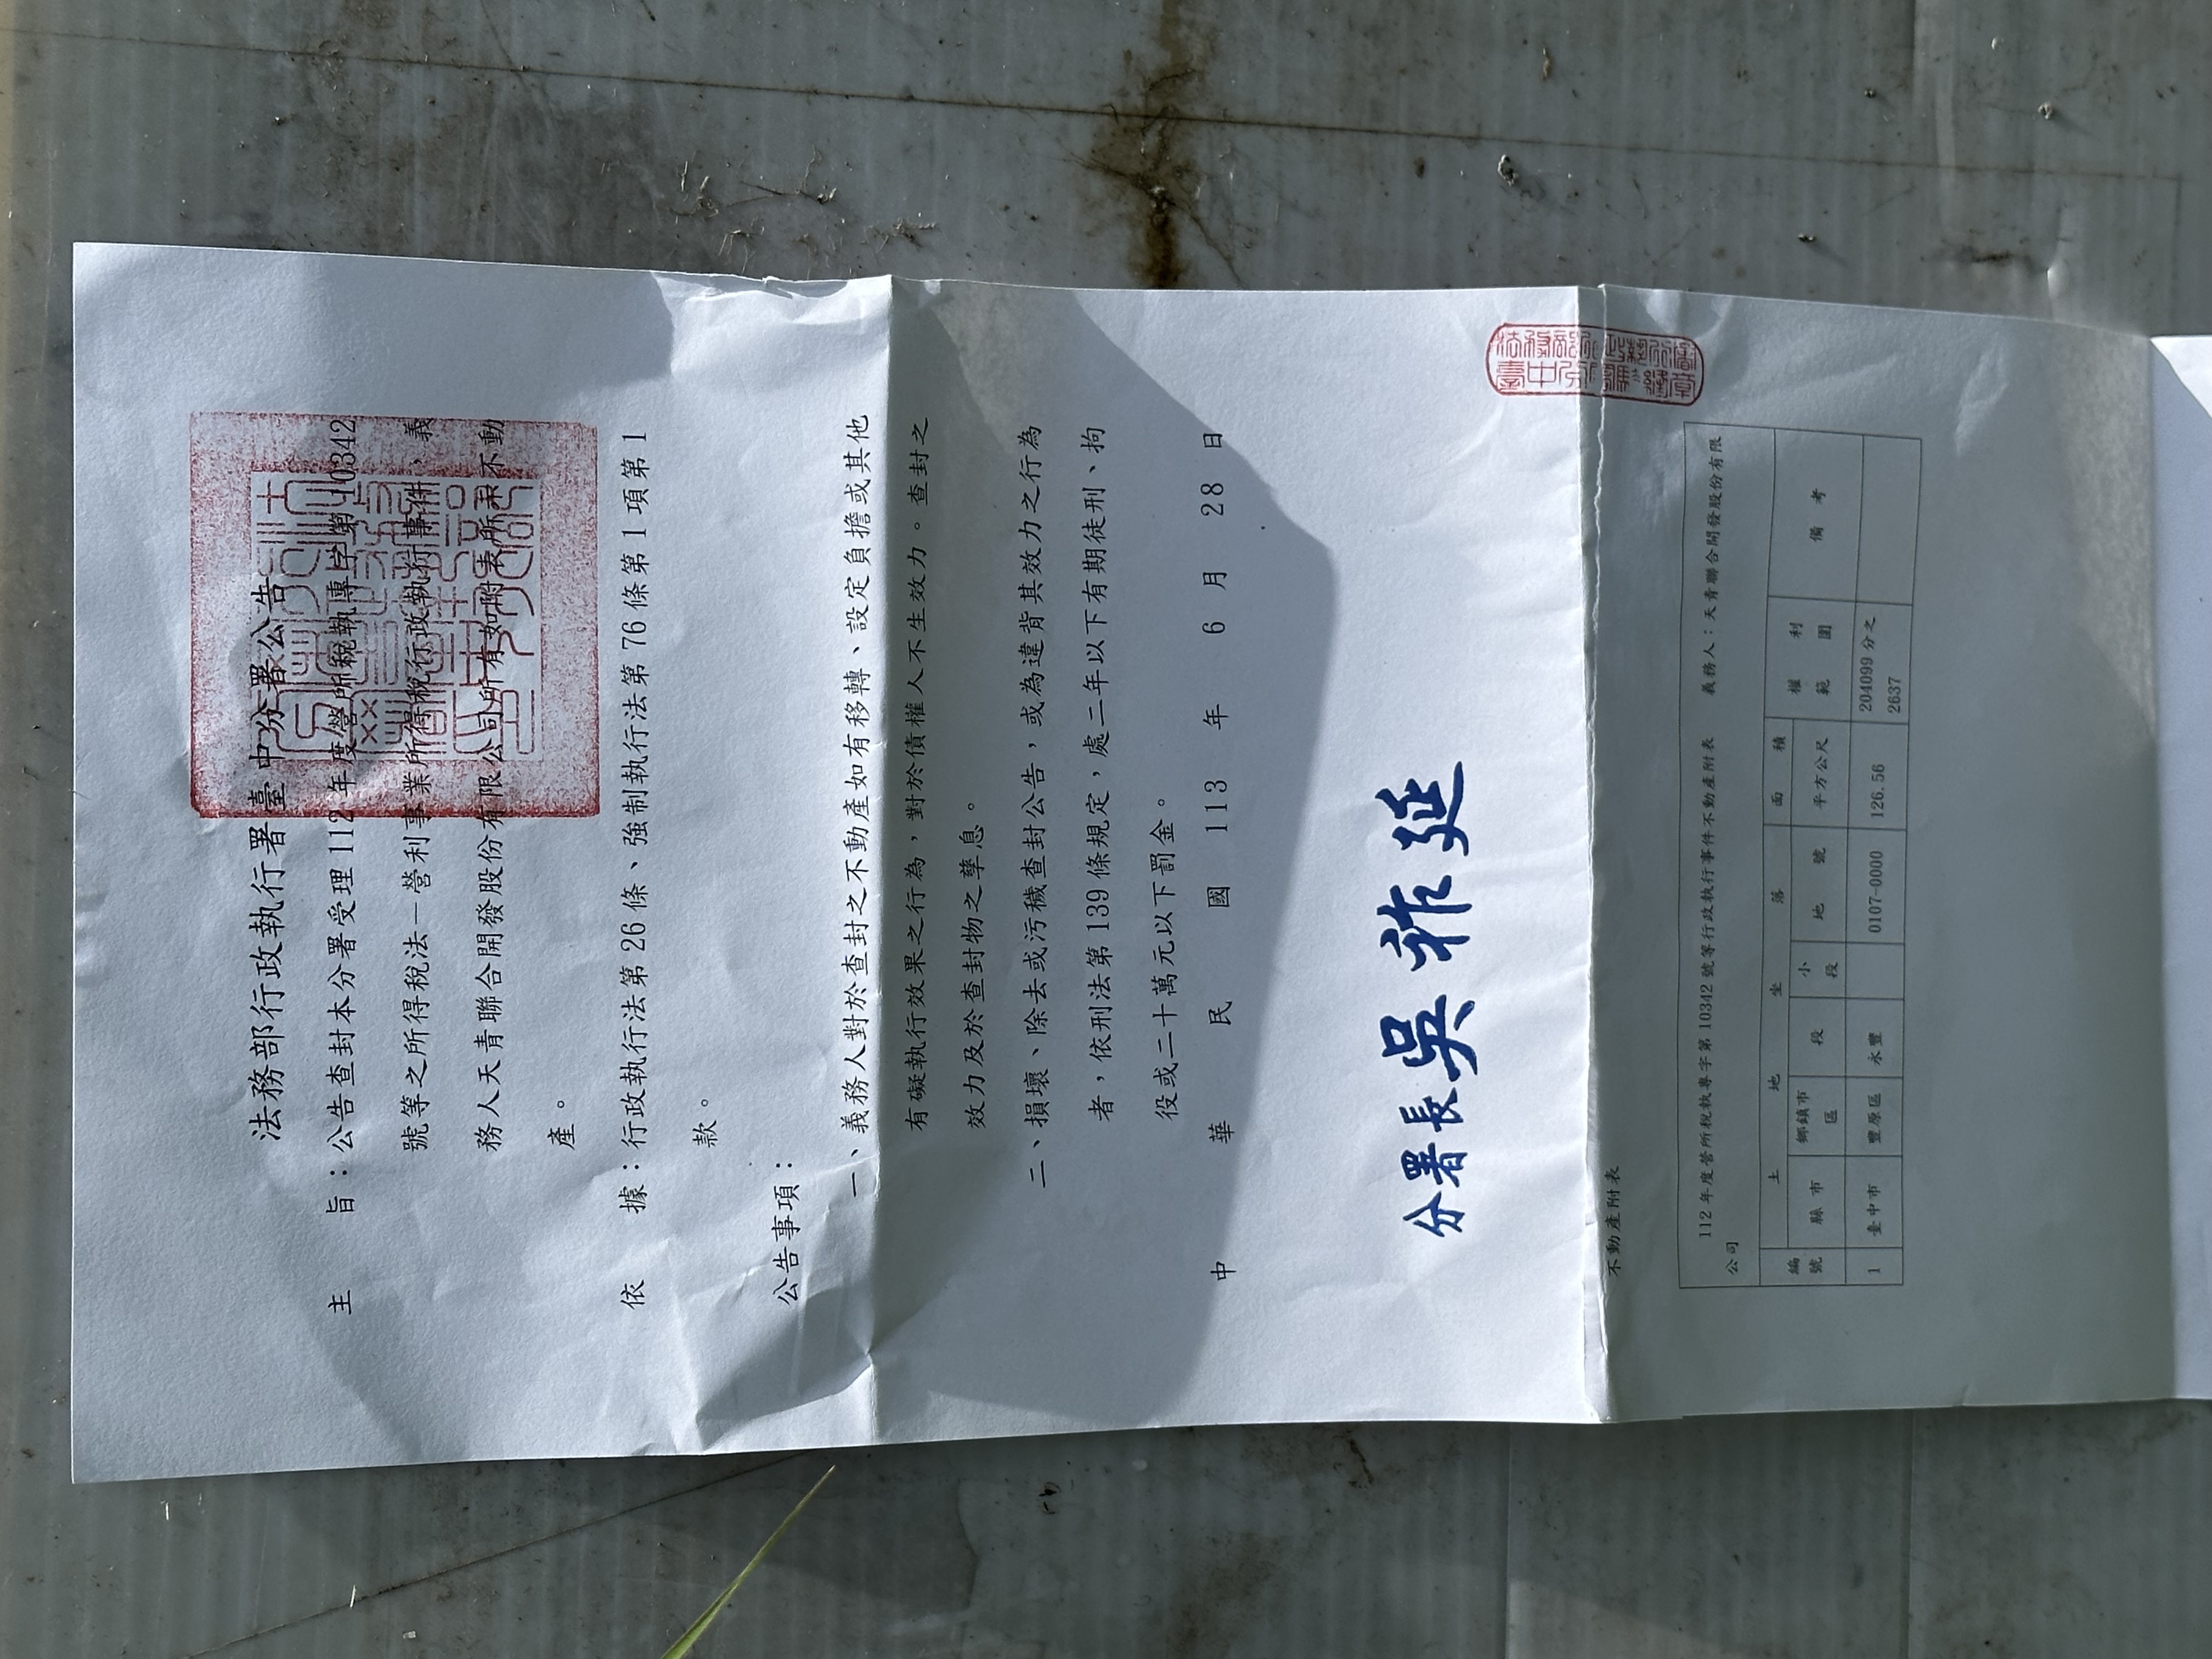 法務部行政執行署臺中分署公告
主 旨：公告查封本分署受理112年度營所稅執專字第10342
號等之所得稅法－營利事業所得稅行政執行事件，義
務人天青聯合開發股份有限公司所有如附表所示不動
產。
依 據：行政執行法第26條、強制執行法第76條第1項第1
款。
公告事項：
一、義務人對於查封之不動產如有移轉、設定負擔或其他
有礙執行效果之行為，對於債權人不生效力。查封之
效力及於查封物之孳息。
二、損壞、除去或污穢查封公告，或為違背其效力之行為
者，依刑法第139條規定，處二年以下有期徒刑、拘
役或二十萬元以下罰金。
中 華 民 國 113 年 6 月 28 日
分署長吳祚延
不動產附表
112年度營所稅執專字第10342號等行政執行事件不動產附表 義務人：天青聯合開發股份有限
公司
編號 土地坐落 面積 權利範圍 備考
縣市 鄉鎮市區 段 小段 地號 平方公尺
1 臺中市 豐原區 永豐 0107-0000 126.56 204099分之2637